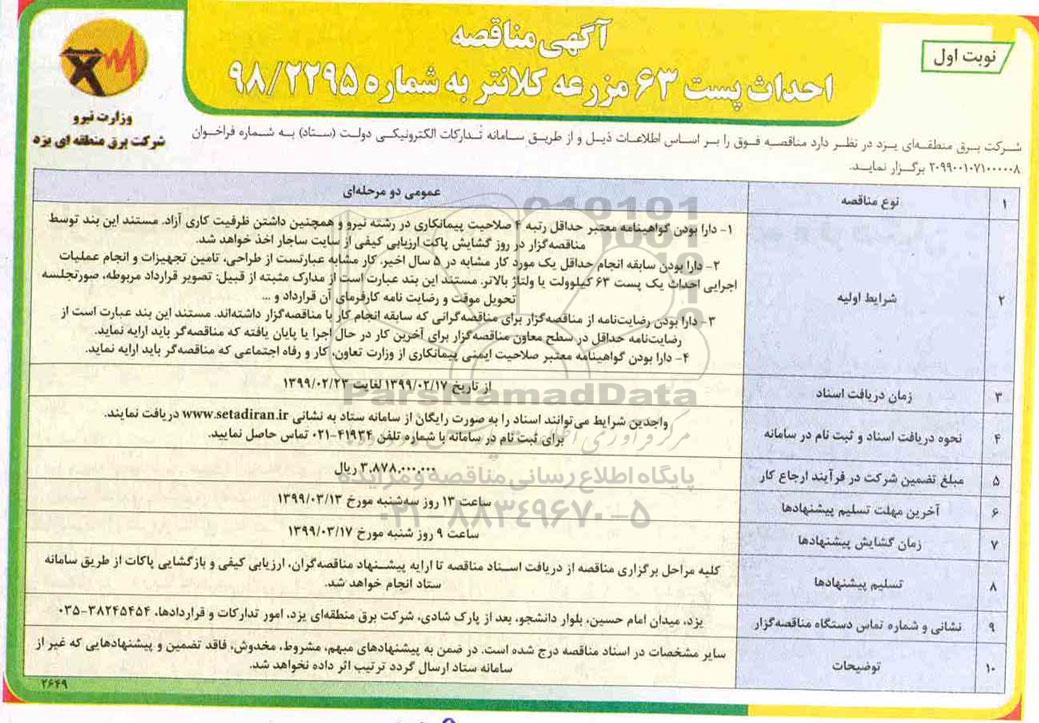 نوبت اول
آگهی مناقصه
احداث پست ۶۳ مزرعه کلانتر به شماره ۹۸/۲۲۹۵
وزارت نیرو
شرکت برق منطقه ای یزد
شرکت برق منطقه‌ای یزد در نظر دارد مناقصه فوق را بر اساس اطلاعات ذیل و از طریق سامانه تدارکات الکترونیکی دولت (ستاد) به شماره فراخوان
۲۰۹۹۰۰۱۰۷۱۰۰۰۰۰۸ برگزار نماید.
۱ نوع مناقصه عمومی دو مرحله‌ای
۲ شرایط اولیه
۱- دارا بودن گواهینامه معتبر حداقل رتبه ۴ صلاحیت پیمانکاری در رشته نیرو و همچنین داشتن ظرفیت کاری آزاد. مستند این بند توسط
مناقصه‌گزار در روز گشایش پاکت ارزیابی کیفی از سایت ساجار اخذ خواهد شد.
۲- دارا بودن سابقه انجام حداقل یک مورد کار مشابه در ۵ سال اخیر. کار مشابه عبارتست از طراحی، تامین تجهیزات و انجام عملیات
اجرایی احداث یک پست ۶۳ کیلوولت یا ولتاژ بالاتر. مستند این بند عبارت است از مدارک مثبته از قبیل: تصویر قرارداد مربوطه، صورتجلسه
تحویل موقت و رضایت نامه کارفرمای آن قرارداد و ...
۳- دارا بودن رضایت‌نامه از مناقصه‌گزار برای مناقصه‌گرانی که سابقه انجام کار با مناقصه‌گزار داشته‌اند. مستند این بند عبارت است از
رضایت‌نامه حداقل در سطح معاون مناقصه‌گزار برای آخرین کار در حال اجرا یا پایان یافته که مناقصه‌گر باید ارایه نماید.
۴- دارا بودن گواهینامه معتبر صلاحیت ایمنی پیمانکاری از وزارت تعاون، کار و رفاه اجتماعی که مناقصه‌گر باید ارایه نماید.
۳ زمان دریافت اسناد از تاریخ ۱۳۹۹/۰۲/۱۷ لغایت ۱۳۹۹/۰۲/۲۳
۴ نحوه دریافت اسناد و ثبت نام در سامانه
واجدین شرایط می‌توانند اسناد را به صورت رایگان از سامانه ستاد به نشانی www.setadiran.ir دریافت نمایند.
برای ثبت نام در سامانه با شماره تلفن ۴۱۹۳۴-۰۲۱ تماس حاصل نمایید.
۵ مبلغ تضمین شرکت در فرآیند ارجاع کار ۳.۸۷۸.۰۰۰.۰۰۰ ریال
۶ آخرین مهلت تسلیم پیشنهادها ساعت ۱۳ روز سه‌شنبه مورخ ۱۳۹۹/۰۳/۱۳
۷ زمان گشایش پیشنهادها ساعت ۹ روز شنبه مورخ ۱۳۹۹/۰۳/۱۷
۸ تسلیم پیشنهادها
کلیه مراحل برگزاری مناقصه از دریافت اسناد مناقصه تا ارایه پیشنهاد مناقصه‌گران، ارزیابی کیفی و بازگشایی پاکات از طریق سامانه
ستاد انجام خواهد شد.
۹ نشانی و شماره تماس دستگاه مناقصه‌گزار یزد، میدان امام حسین، بلوار دانشجو، بعد از پارک شادی، شرکت برق منطقه‌ای یزد، امور تدارکات و قراردادها، ۳۸۲۴۵۴۵۴-۰۳۵
۱۰ توضیحات
سایر مشخصات در اسناد مناقصه درج شده است. در ضمن به پیشنهادهای مبهم، مشروط، مخدوش، فاقد تضمین و پیشنهادهایی که غیر از
سامانه ستاد ارسال گردد ترتیب اثر داده نخواهد شد.
۲۶۴۹
ParsNamadData
پایگاه اطلاع رسانی مناقصه و مزایده
۰۲۱-۸۸۳۴۹۶۷۰-۵